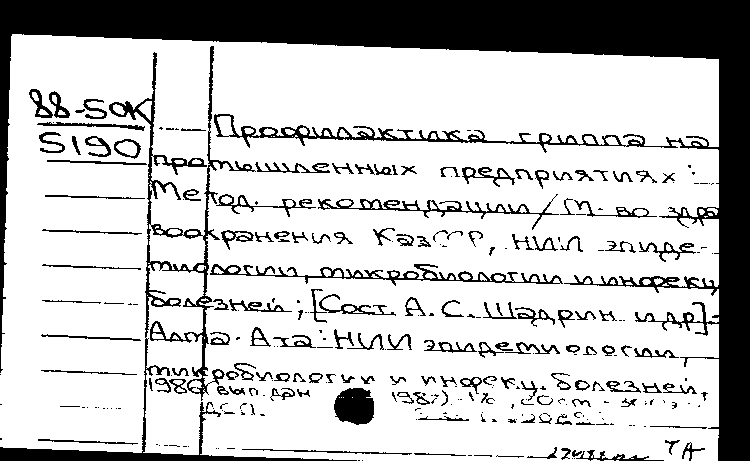 88-50К
5190
Профилактика гриппа на
промышленных предприятиях:
Метод. рекомендации / М-во здра
воохранения КазССР, НИИ эпиде-
миологии, микробиологии и инфекц
болезней; [Сост. А. С. Шадрин и др]-
Алма-Ата: НИИ эпидемиологии,
микробиологии и инфекц. болезней,
1986 (вып. дан 1987).
ДСП.
ТА